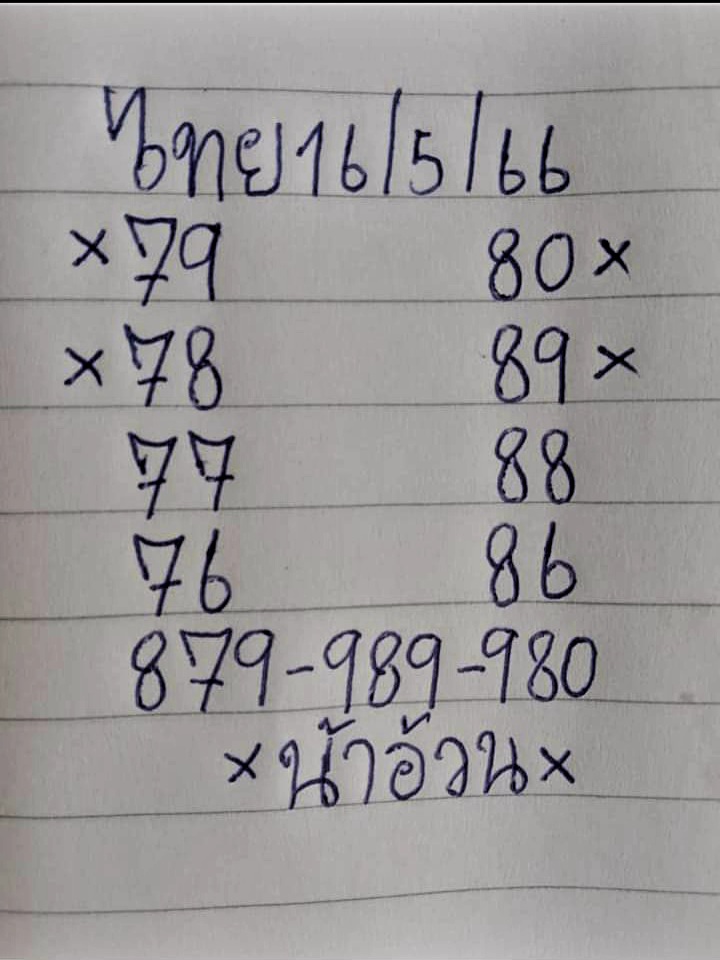 ไทย 16/5/66
×79 80×
×78 89×
77 88
76 86
879-989-980
×น้าอ้วน×